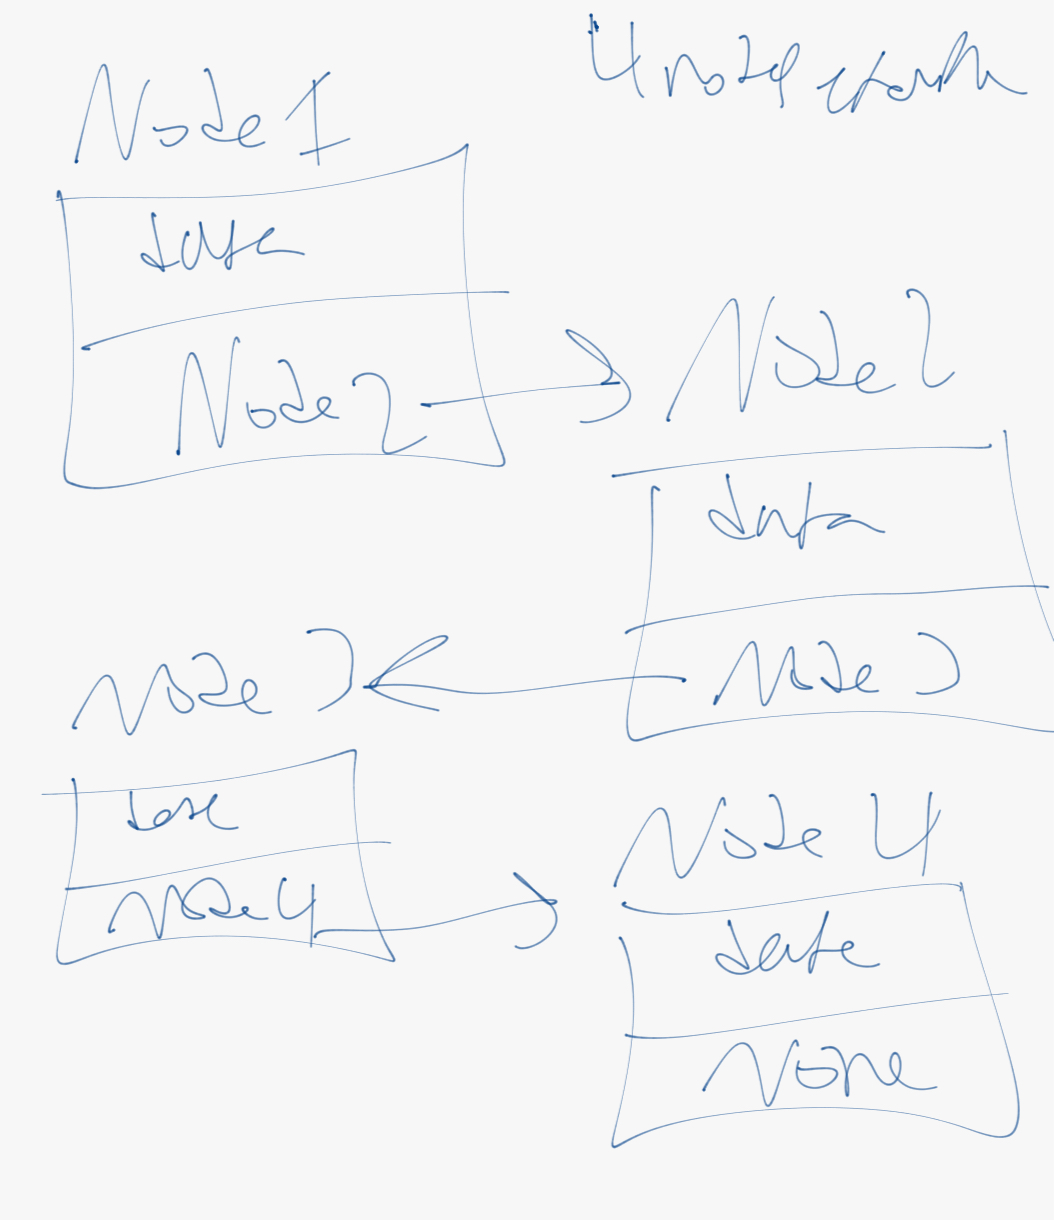 4 node
Node 1
data
Node 2
Node 2
data
Node 3
Node 3
data
Node 4
Node 4
data
None